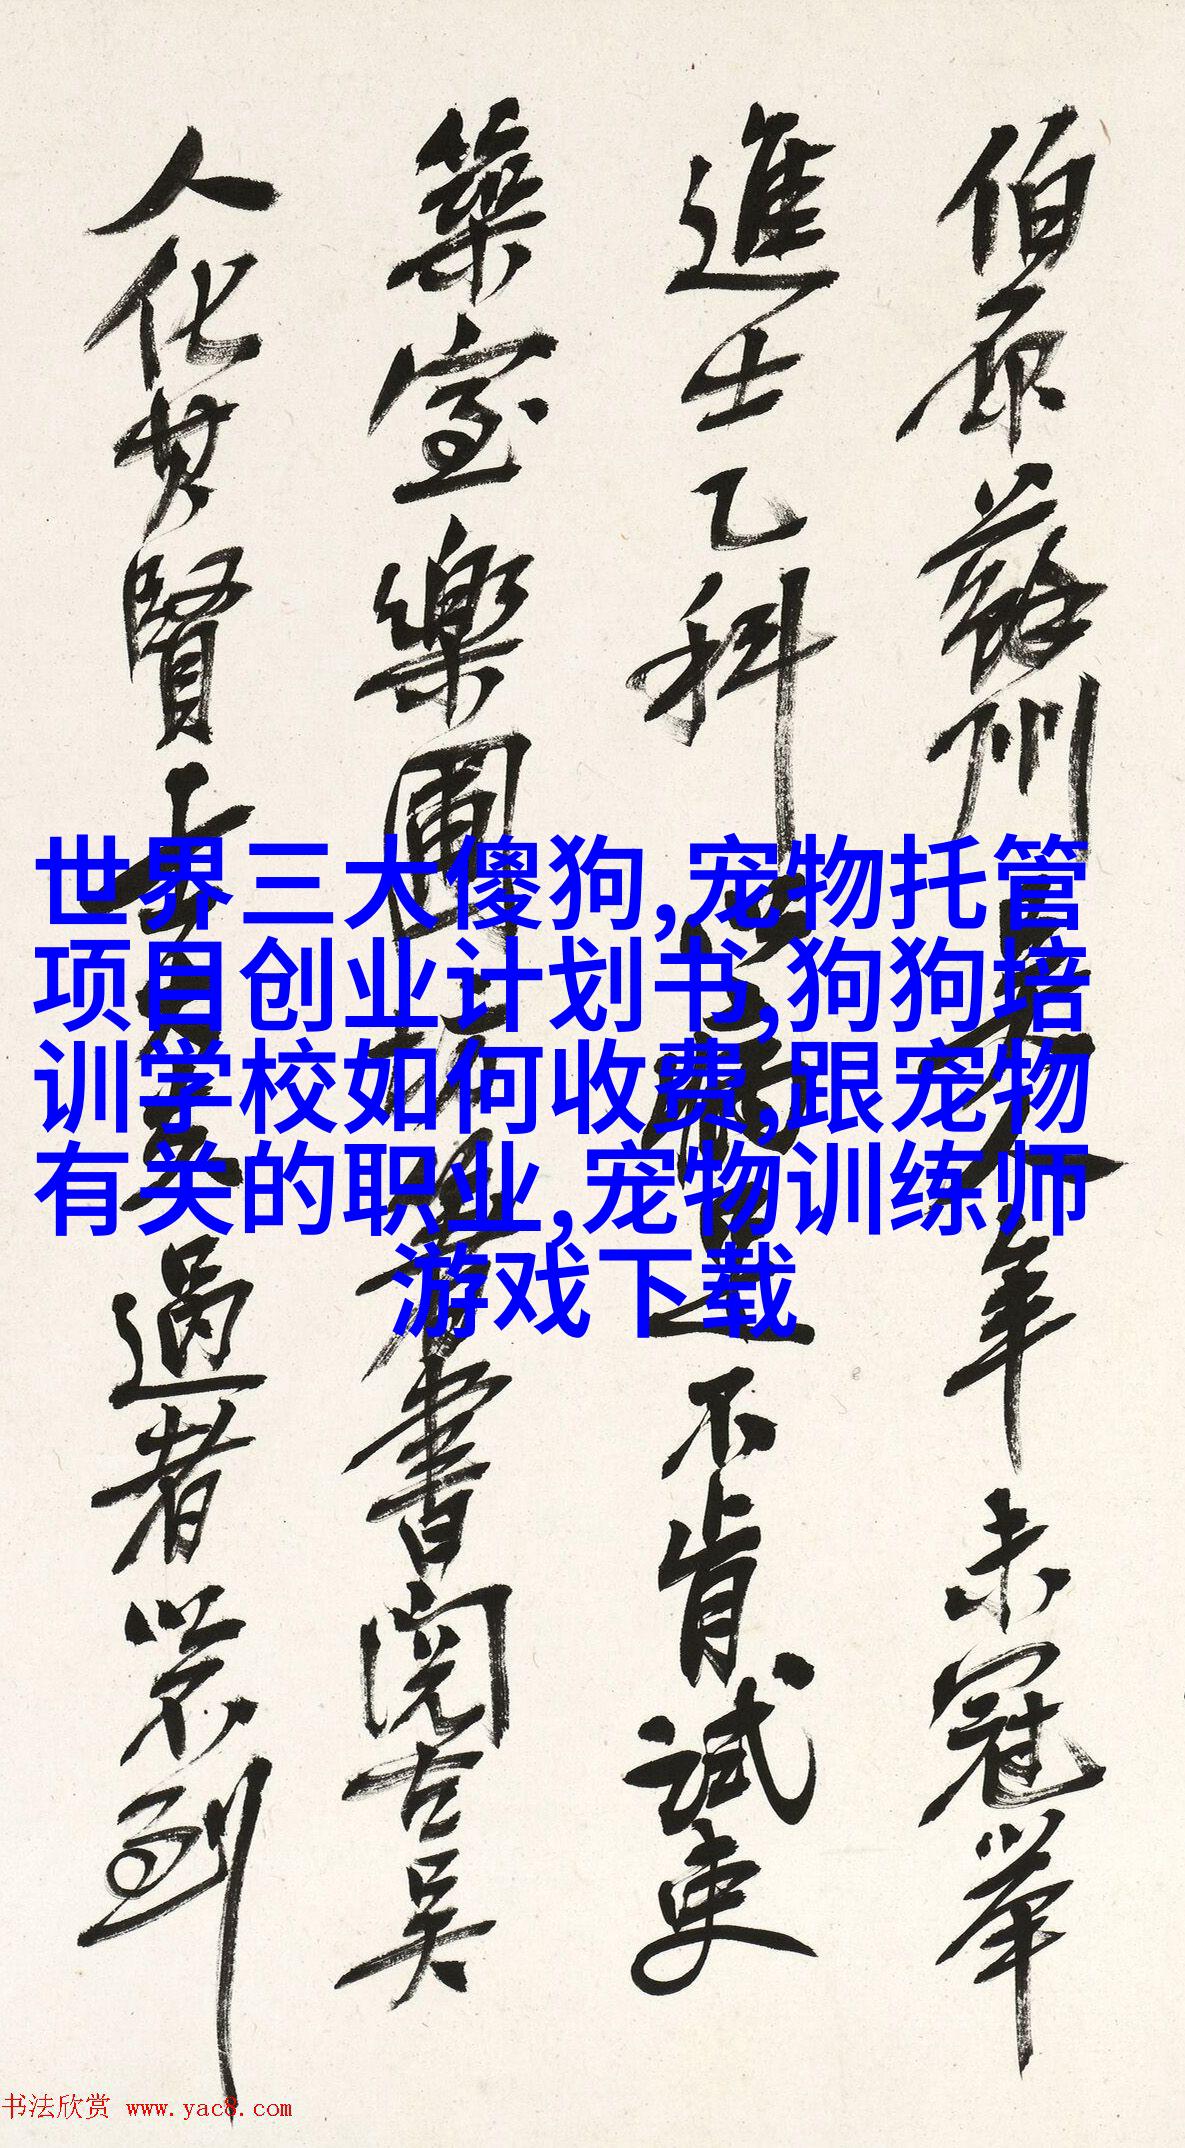 伯原蘇州吳人年未冠舉
進士乙科不肯試吏
築室樂圃著書閱古吳
人化其賢過者以不到
世界三大傻狗,宠物托管
项目创业计划书,狗狗培
训学校如何收费,跟宠物
有关的职业,宠物训练师
游戏下载
书法欣赏 www.yac8.com